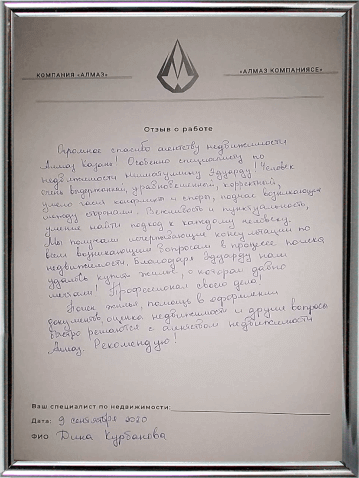 КОМПАНИЯ «АЛМАЗ»
«АЛМАЗ КОМПАНИЯСЕ»
Отзыв о работе
Огромное спасибо агентству недвижимости
Алмаз Казань! Особенно специалисту по
недвижимости Эдуарду! Человек
очень выдержанный, уравновешенный, корректный,
умело гасил конфликты и споры, подчас возникающие
между сторонами. Вежливость и пунктуальность,
умение найти подход к каждому человеку.
Мы получали исчерпывающие консультации по
всем возникающим вопросам в процессе поиска
недвижимости. Благодаря Эдуарду нам
удалось купить жильё, о котором давно
мечтали! Профессионал своего дела!
Поиск жилья, помощь в оформлении
документов, оценка недвижимости и другие вопросы
быстро решаются с агентством недвижимости
Алмаз. Рекомендую!
Ваш специалист по недвижимости:
Дата: 9 сентября 2020
ФИО Дина Курбанова